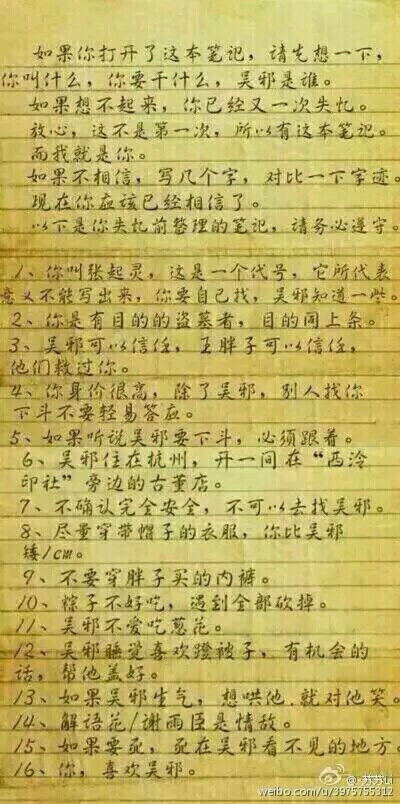 如果你打开了这本笔记，请先想一下，
你叫什么，你要干什么，吴邪是谁。
如果想不起来，你已经又一次失忆。
放心，这不是第一次，所以有这本笔记。
而我就是你。
如果不相信，写几个字，对比一下字迹。
现在你应该已经相信了。
以下是你失忆前整理的笔记，请务必遵守。
1、你叫张起灵，这是一个代号，它所代表
意义不能写出来，你要自己找，吴邪知道一些。
2、你是有目的的盗墓者，目的同上条。
3、吴邪可以信任，王胖子可以信任，
他们救过你。
4、你身价很高，除了吴邪，别人找你
下斗不要轻易答应。
5、如果听说吴邪要下斗，必须跟着。
6、吴邪住在杭州，开一间在“西泠
印社”旁边的古董店。
7、不确认完全安全，不可以去找吴邪。
8、尽量穿带帽子的衣服，你比吴邪
矮1cm。
9、不要穿胖子买的内裤。
10、粽子不好吃，遇到全部砍掉。
11、吴邪不爱吃葱花。
12、吴邪睡觉喜欢蹬被子，有机会的
话，帮他盖好。
13、如果吴邪生气，想哄他，就对他笑。
14、解语花/谢雨臣是情敌。
15、如果要死，死在吴邪看不见的地方。
16、你，喜欢吴邪。
苏苏Li
weibo.com/u/3975755312